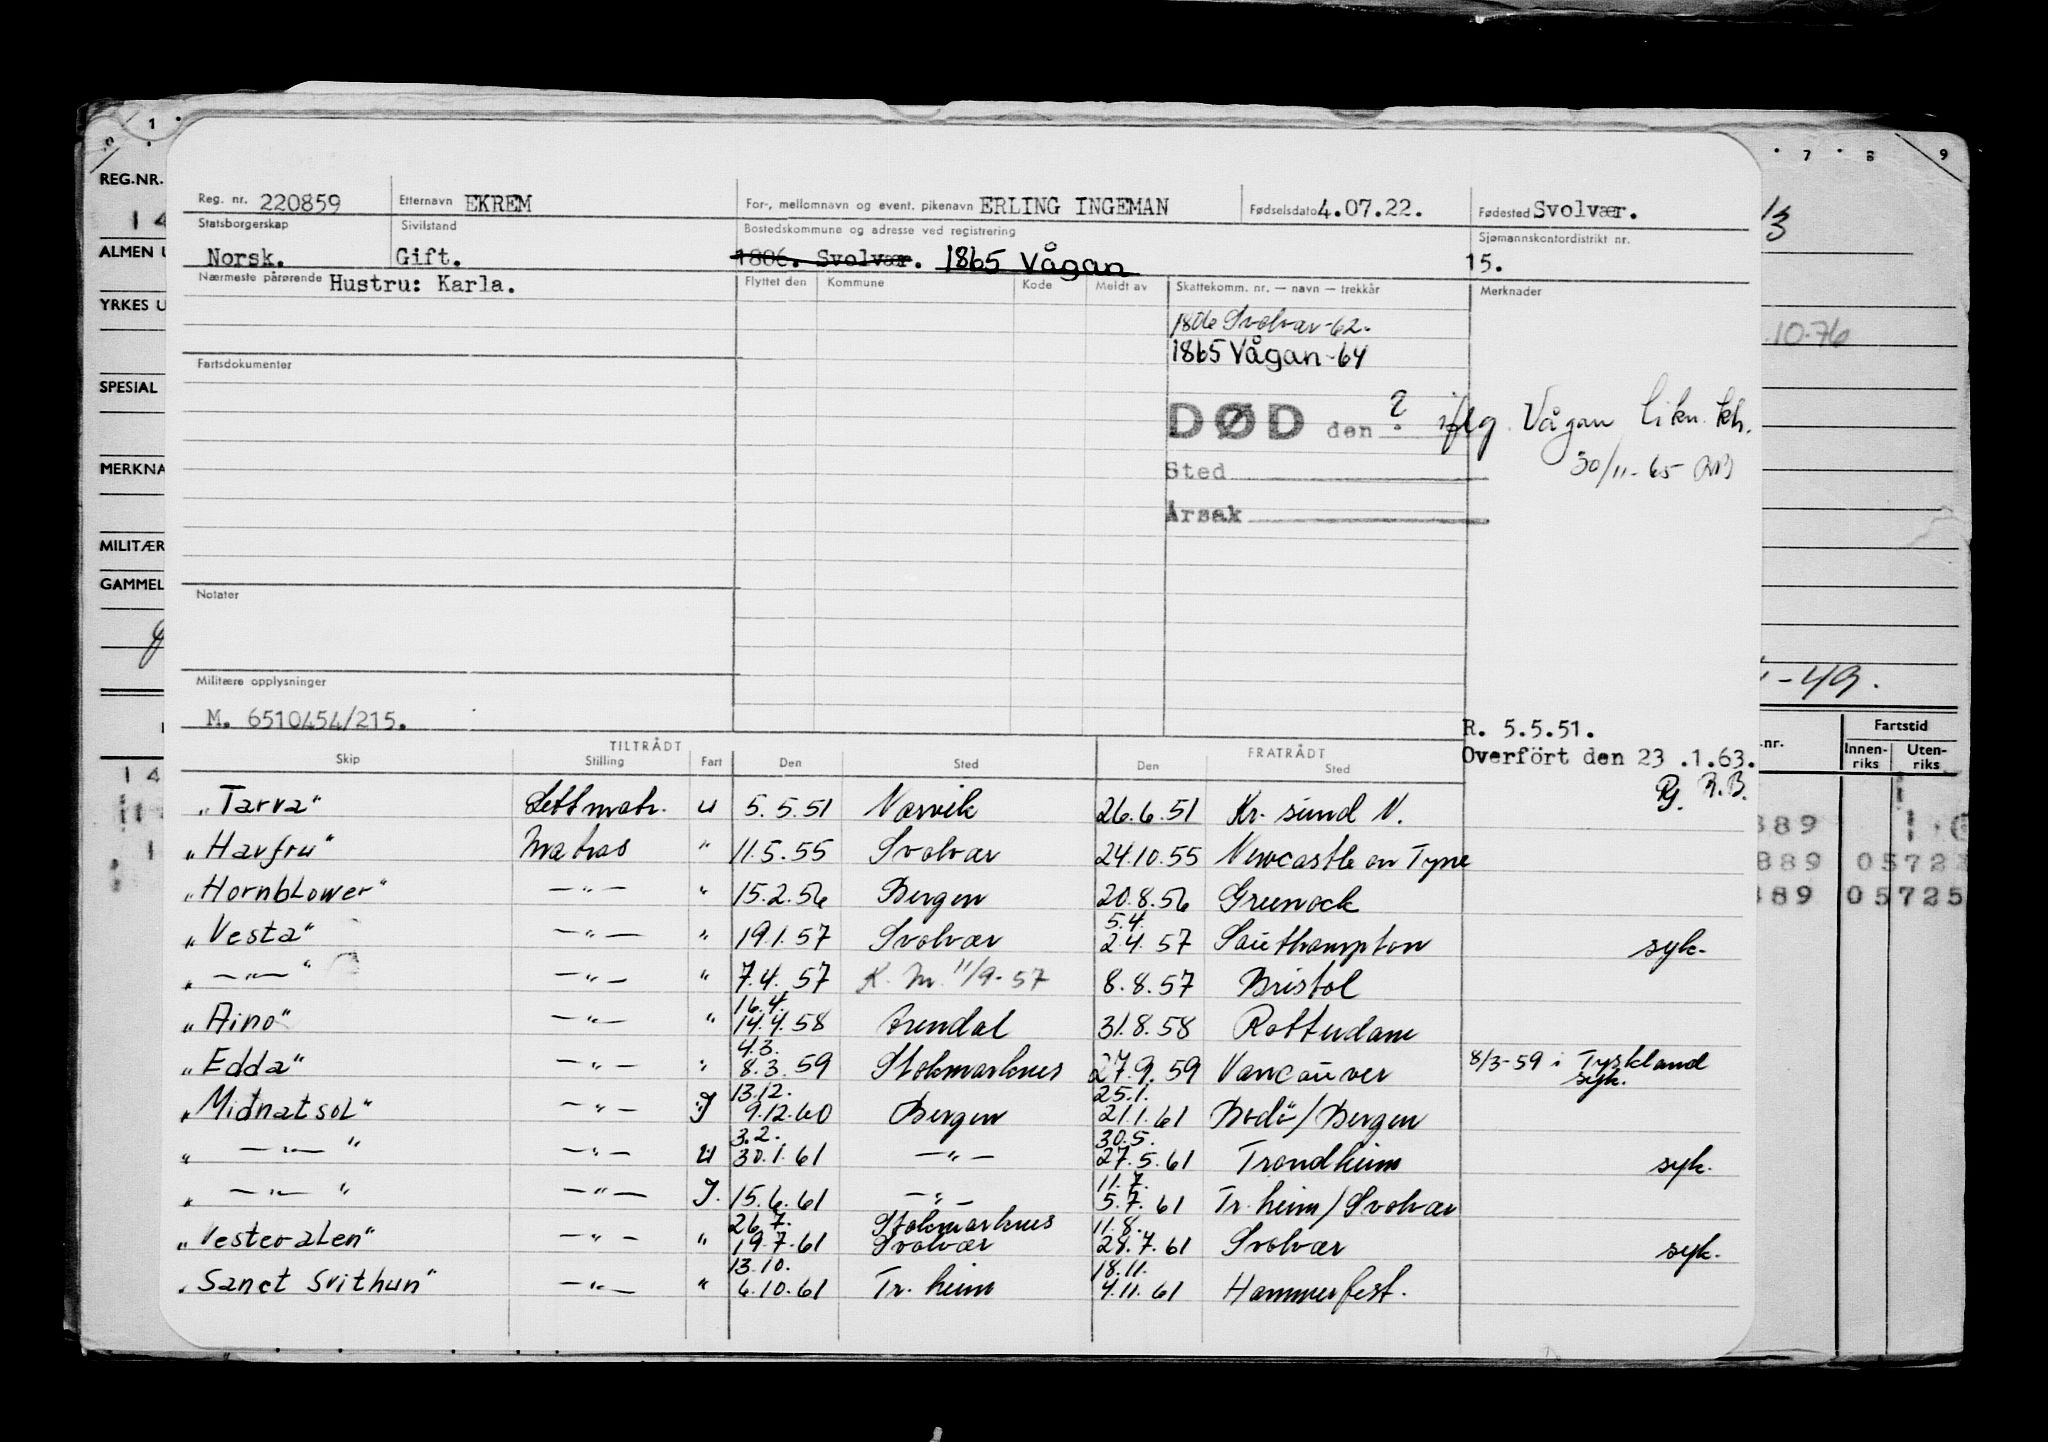 REG.NR.
1 4
ALMEN U
YRKES U
SPESIAL
MERKNA
MILITÆR
GAMMEL
1 4
1
7 8 9
13
10-76
-49.
.nr. Fartstid
Innen-riks Uten-riks
889
889 0572
889 05725
Reg. nr. 220859 Etternavn EKREM For-, mellomnavn og event. pikenavn ERLING INGEMAN Fødselsdato 4.07.22. Fødested Svolvær.
Statsborgerskap Sivilstand Bostedskommune og adresse ved registrering Sjømannskontordistrikt nr.
Norsk. Gift. 1806. Svolvær. 1865 Vågan 15.
Nærmeste pårørende Hustru: Karla. Flyttet den Kommune Kode Meldt av Skattekomm. nr. — navn — trekkår Merknader
1806 Svolvær-62.
1865 Vågan-64
Fartsdokumenter
DØD den ? iflg. Vågan likn. kh.
30/11-65
Sted
Årsak
Notater
Militære opplysninger
M. 6510454/215.
R. 5.5.51.
Overfört den 23 .1.63.
R.B.
TILTRÅDT FRATRÅDT
Skip Stilling Fart Den Sted Den Sted
"Tarva" Lettmatr. U 5.5.51 Narvik 26.6.51 Kr. sund N.
"Havfru" Matros " 11.5.55 Svolvær 24.10.55 Newcastle on Tyne
"Hornblower" —"— " 15.2.56 Bergen 20.8.56 Greenock
5.4.
"Vesta" —"— " 19.1.57 Svolvær 2.4.57 Southampton syk.
" —"— " —"— " 7.4.57 K. M. 11/9-57 8.8.57 Bristol
16.4.
"Aino" —"— " 14.4.58 Arendal 31.8.58 Rotterdam
4.3.
"Edda" —"— " 8.3.59 Stokmarknes 27.9.59 Vancouver 8/3-59 i Tyskland
syk.
13.12. 25.1.
"Midnatsol" —"— I 9.12.60 Bergen 21.1.61 Bodö/Bergen
3.2. 30.5.
" —"— " —"— U 30.1.61 —"— 27.5.61 Trondheim syk.
11.7.
" —"— " —"— I. 15.6.61 —"— 5.7.61 Tr. heim/Svolvær
26.7. Stokmarknes 11.8.
"Vesterålen" —"— " 19.7.61 Svolvær 28.7.61 Svolvær syk.
13.10. 18.11.
"Sanct Svithun" —"— " 6.10.61 Tr. heim 4.11.61 Hammerfest.